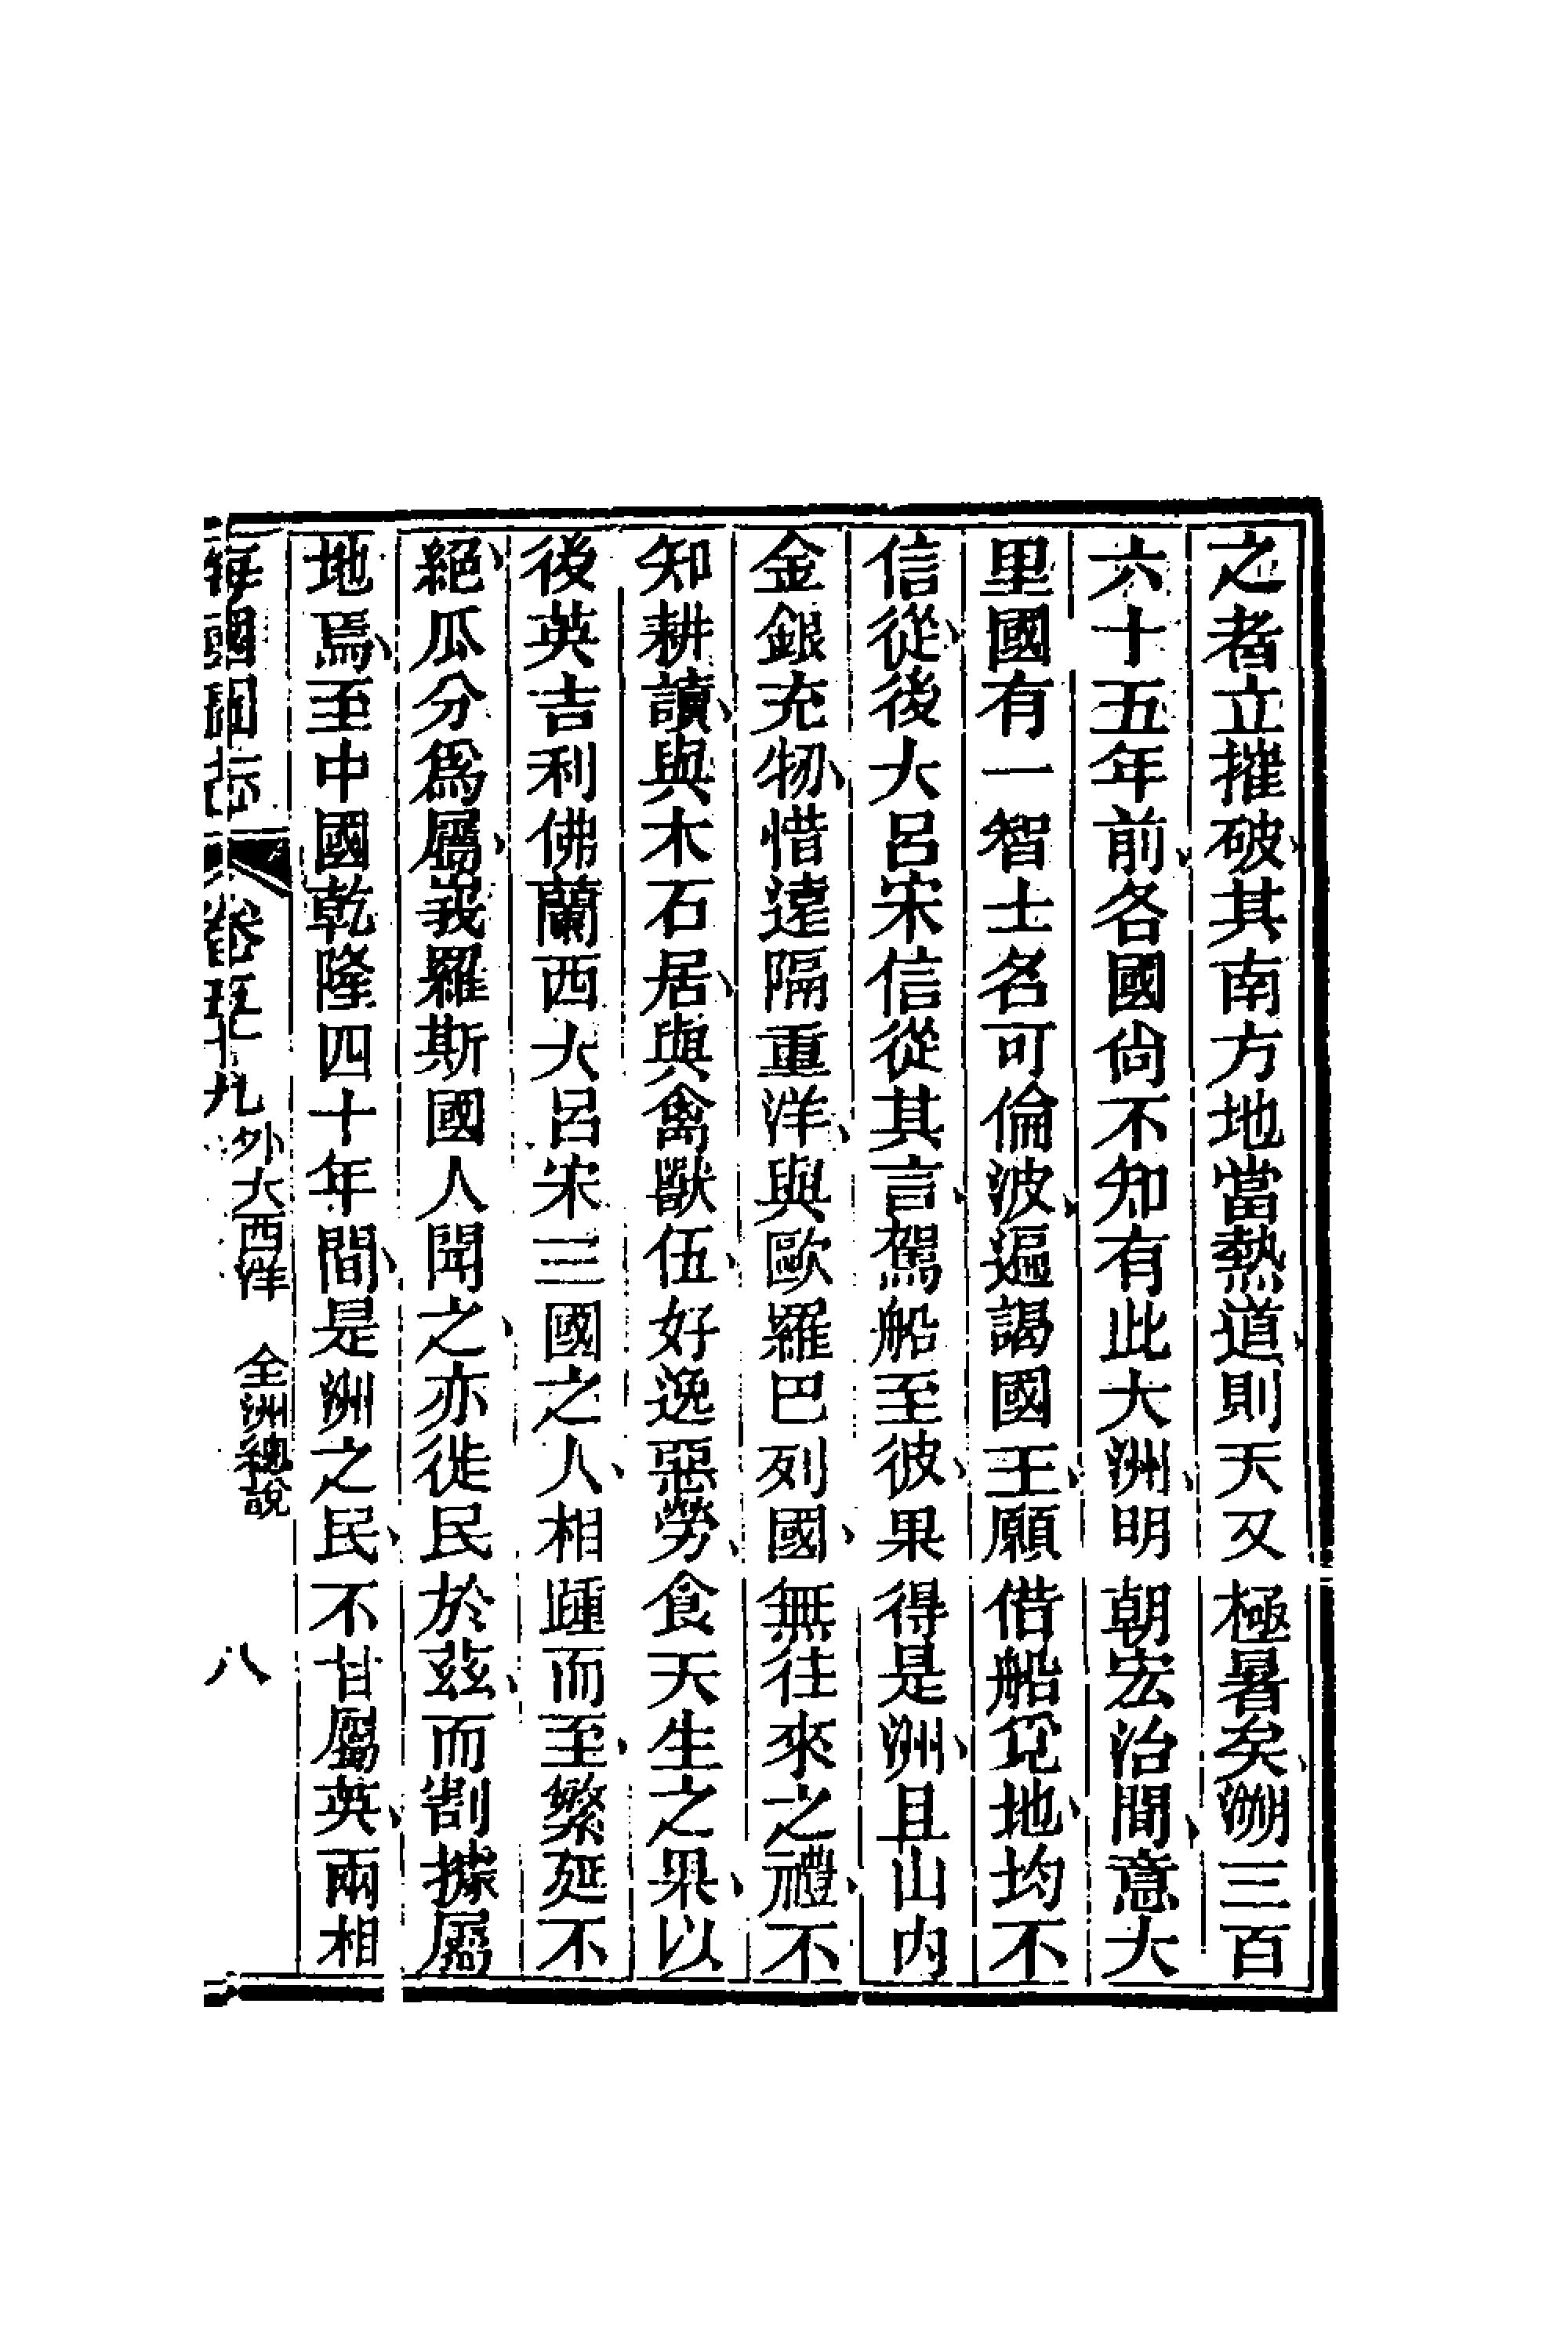 之者立摧破其南方地當熱道則天又極暑矣溯三百
六十五年前各國尙不知有此大洲明朝宏治間意大
里國有一智士名可倫波遍謁國王願借船覓地均不
信從後大呂宋信從其言駕船至彼果得是洲且山內
金銀充牣惜遠隔重洋與歐羅巴列國無往來之禮不
知耕讀與木石居與禽獸伍好逸惡勞食天生之果以
後英吉利佛蘭西大呂宋三國之人相踵而至繁延不
絕瓜分爲屬峩羅斯國人聞之亦徙民於茲而割據屬
地焉至中國乾隆四十年間是洲之民不甘屬英兩相
海國圖志 卷五十九 外大西洋 全洲總說 八